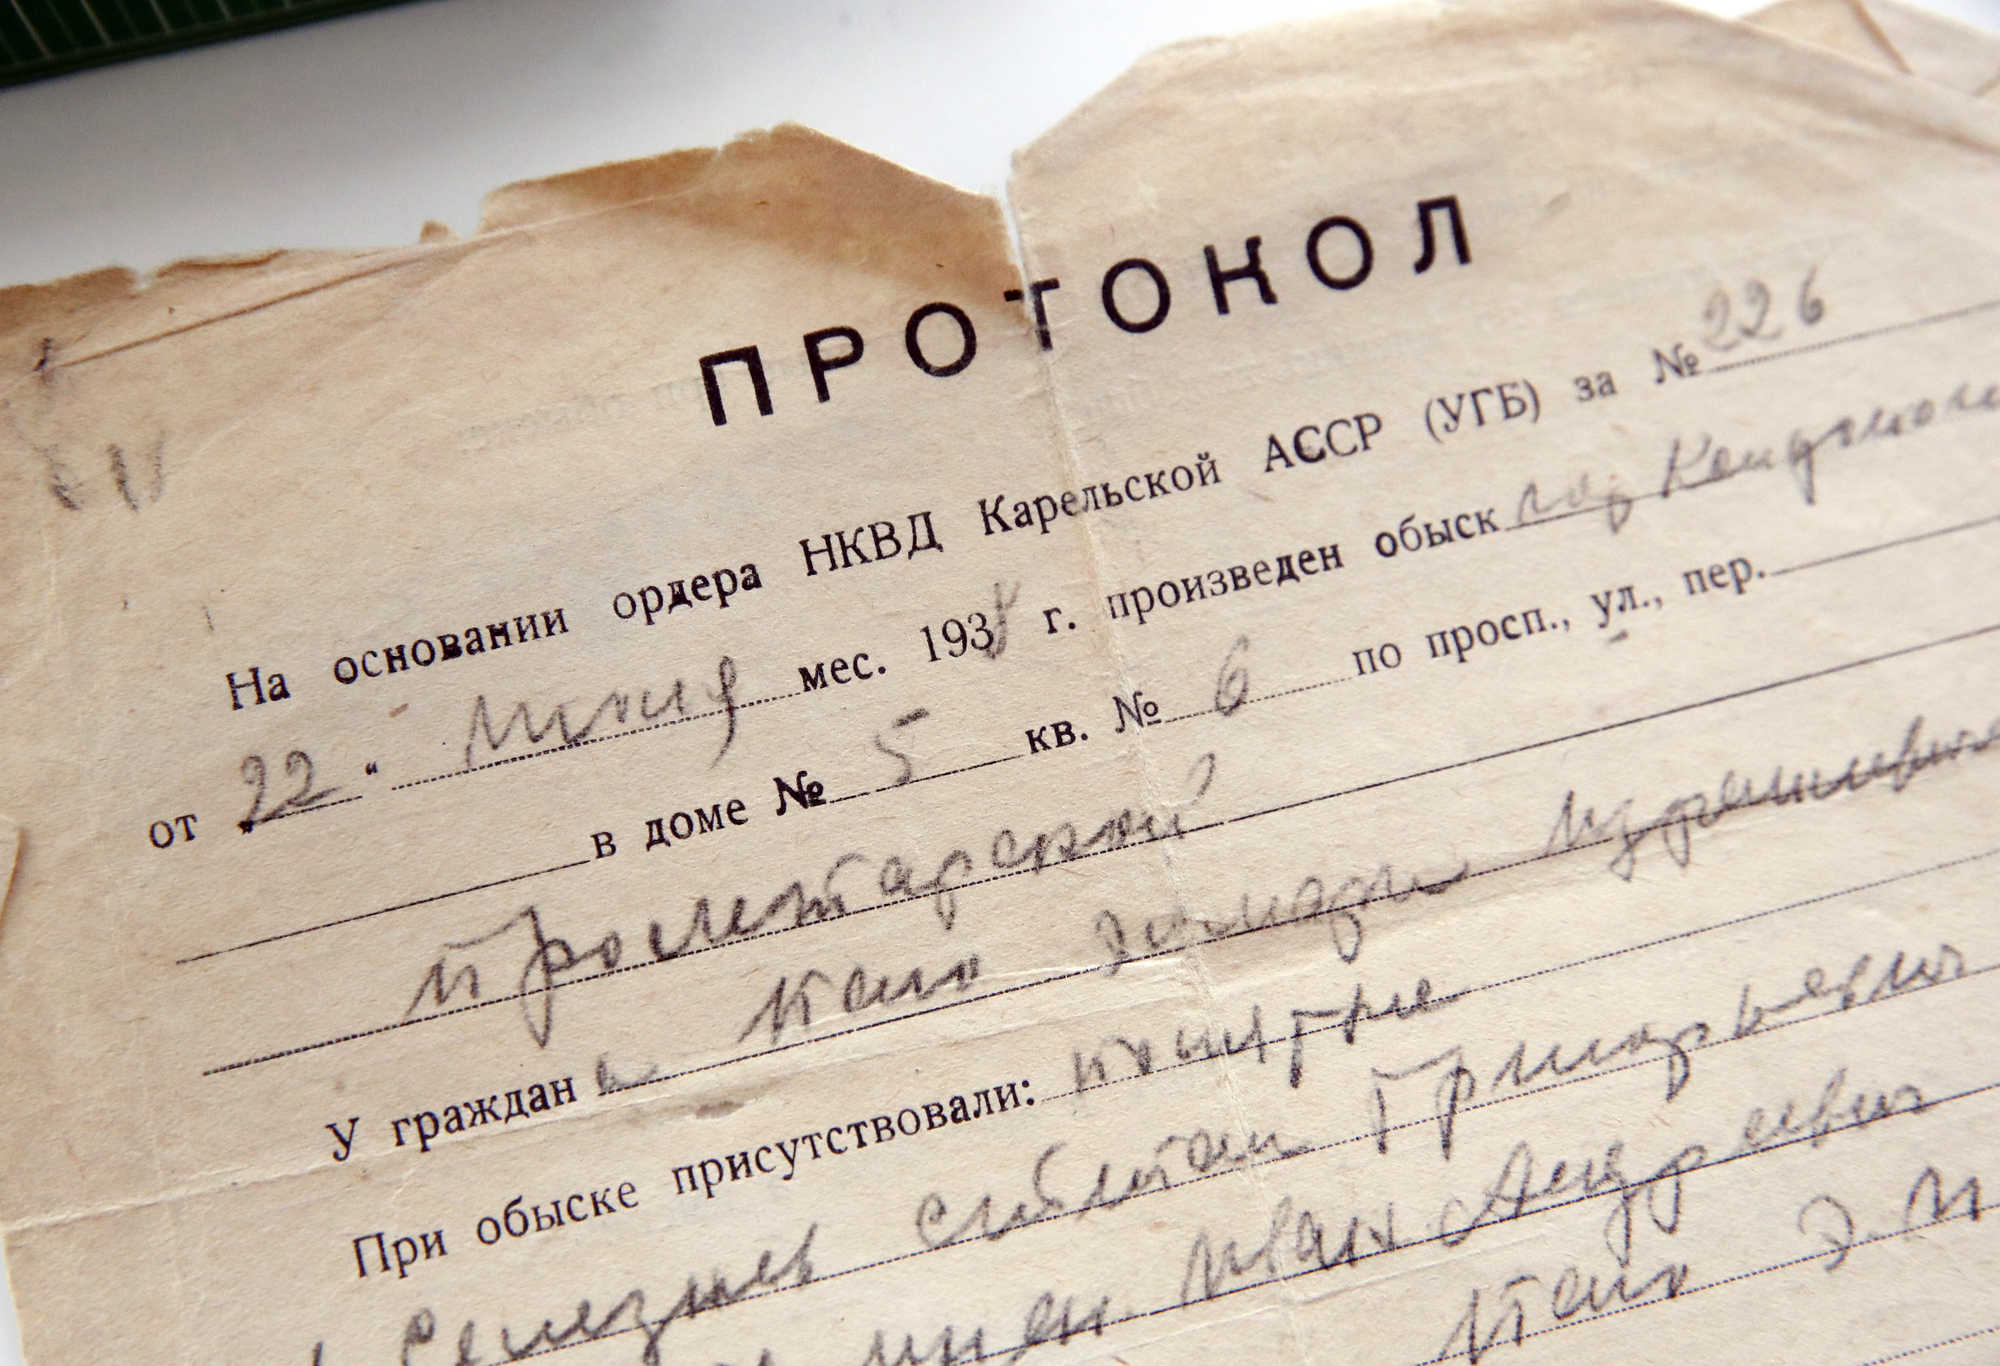 ПРОТОКОЛ
На основании ордера НКВД Карельской АССР (УГБ) за № 226
от „22“ июня мес. 1938 г. произведен обыск гор Кондопога
в доме № 5 кв. № 6 по просп., ул., пер.
Пролетарской
У граждан
При обыске присутствовали: понятые
Селезнев Григорьевич
Иван Андреевич
Э. И